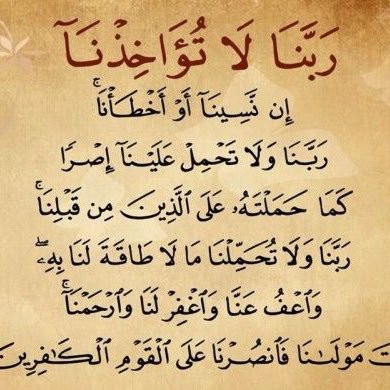 رَبَّنَا لَا تُؤَاخِذْنَآ
إِن نَّسِينَآ أَوْ أَخْطَأْنَاۚ
رَبَّنَا وَلَا تَحْمِلْ عَلَيْنَآ إِصْرًا
كَمَا حَمَلْتَهُۥ عَلَى ٱلَّذِينَ مِن قَبْلِنَاۚ
رَبَّنَا وَلَا تُحَمِّلْنَا مَا لَا طَاقَةَ لَنَا بِهِۦۖ
وَٱعْفُ عَنَّا وَٱغْفِرْ لَنَا وَٱرْحَمْنَآۚ
تَ مَوْلَىٰنَا فَٱنصُرْنَا عَلَى ٱلْقَوْمِ ٱلْكَـٰفِرِينَ